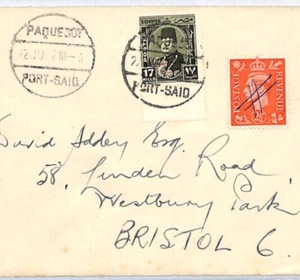 PAQUEBOT
PORT-SAID
EGYPTE
17 ١٧
PORT-SAID
POSTAGE
REVENUE
David Addey Esq.
58, Linden Road,
Westbury Park
BRISTOL 6.